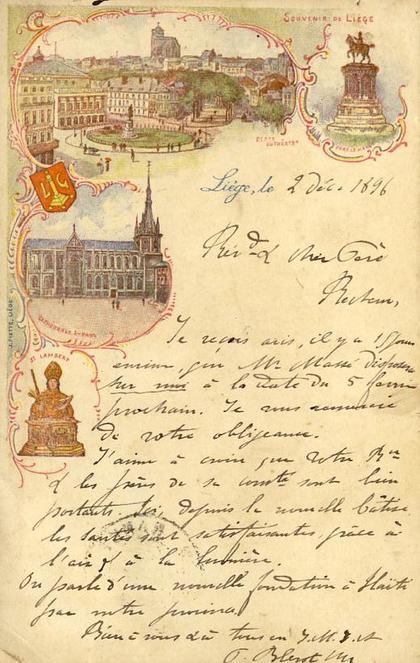 SOUVENIR DE LIÉGE
PLACE DU THÉATRE
LIG
CATHÉDRALE St PAUL
St LAMBERT
Liége, le 2 Déc. 1896
Rév.d & cher Père
Recteur,
Je reçois avis, il y a
que Mr Massé disposera
sur moi à la date du 5
prochain. Je vous remercie
de votre obligeance.
J'aime à croire que votre Rce
& les frères de sa comté sont bien
portants. Ici, depuis la nouvelle bâtisse,
les santés sont satisfaisantes, grâce à
l'air & à la lumière.
On parle d'une nouvelle fondation à Haïti
par notre province.
Bien à vous & à tous en J. M. J. et